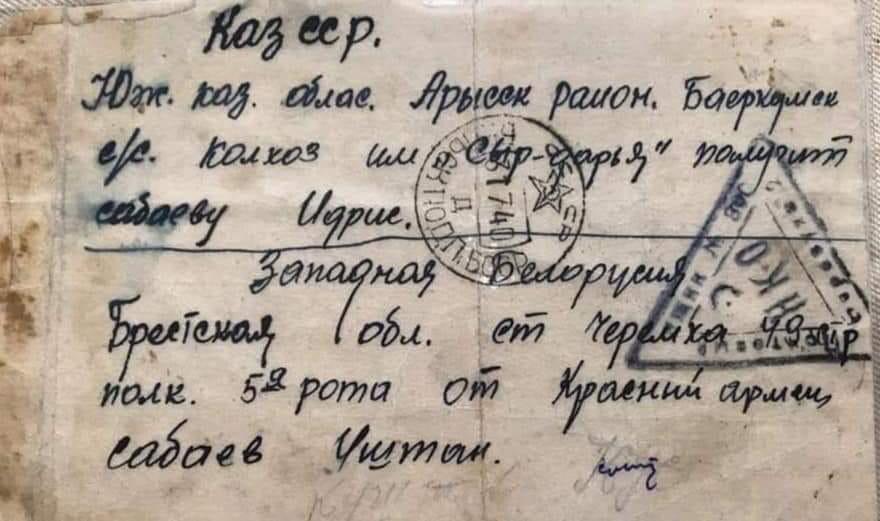 Каз сср.
Юж. каз. облас. Арысск район. Баеркумск
с/с. колхоз им "Сыр-дарья" получит
сабаеву Идрис.
Западная Белорусия
Брестская обл. ст Черемха 49 стр
полк. 5я рота от Красний армеец
сабаев Уштан.
СССР
7 40
Д
НКО